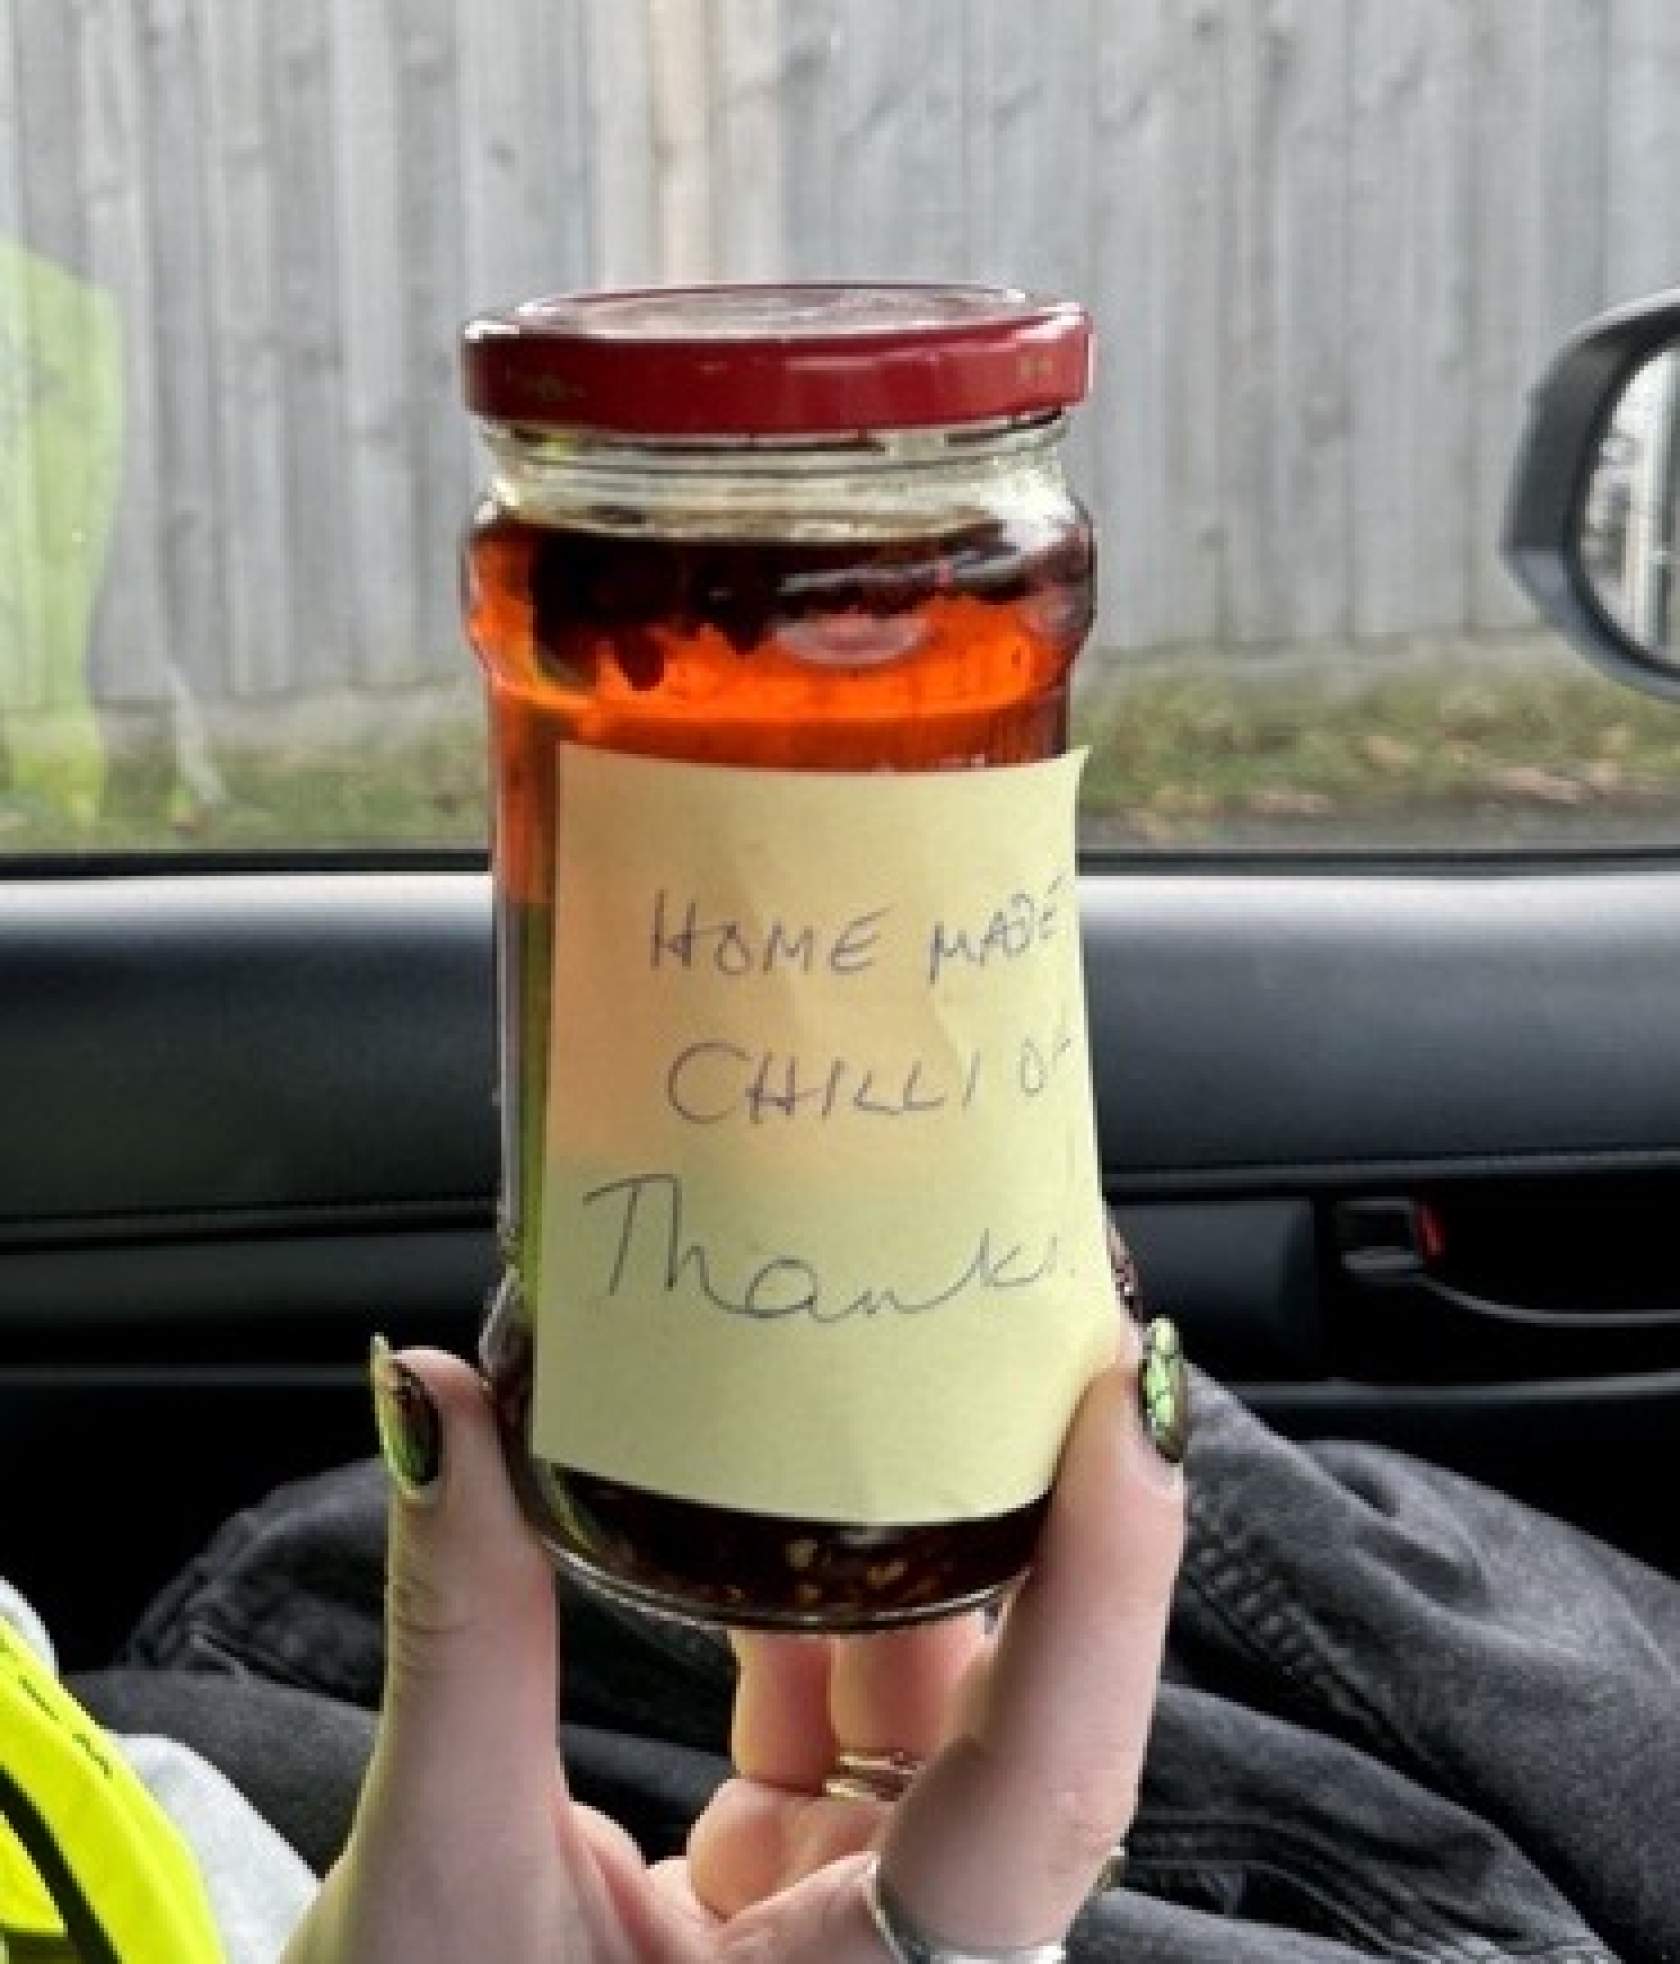 HOME MADE
CHILLI
Thanks.